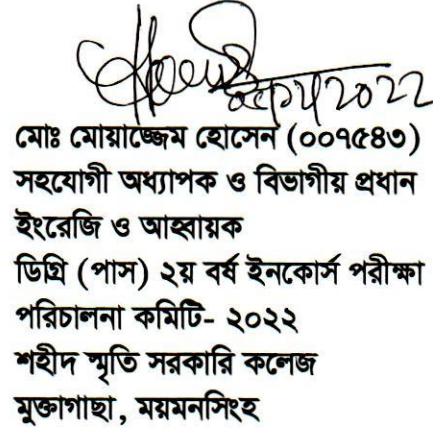 মোঃ মোয়াজ্জেম হোসেন (০০৭৫৪৩)
সহযোগী অধ্যাপক ও বিভাগীয় প্রধান
ইংরেজি ও আহ্বায়ক
ডিগ্রি (পাস) ২য় বর্ষ ইনকোর্স পরীক্ষা
পরিচালনা কমিটি- ২০২২
শহীদ স্মৃতি সরকারি কলেজ
মুক্তাগাছা, ময়মনসিংহ